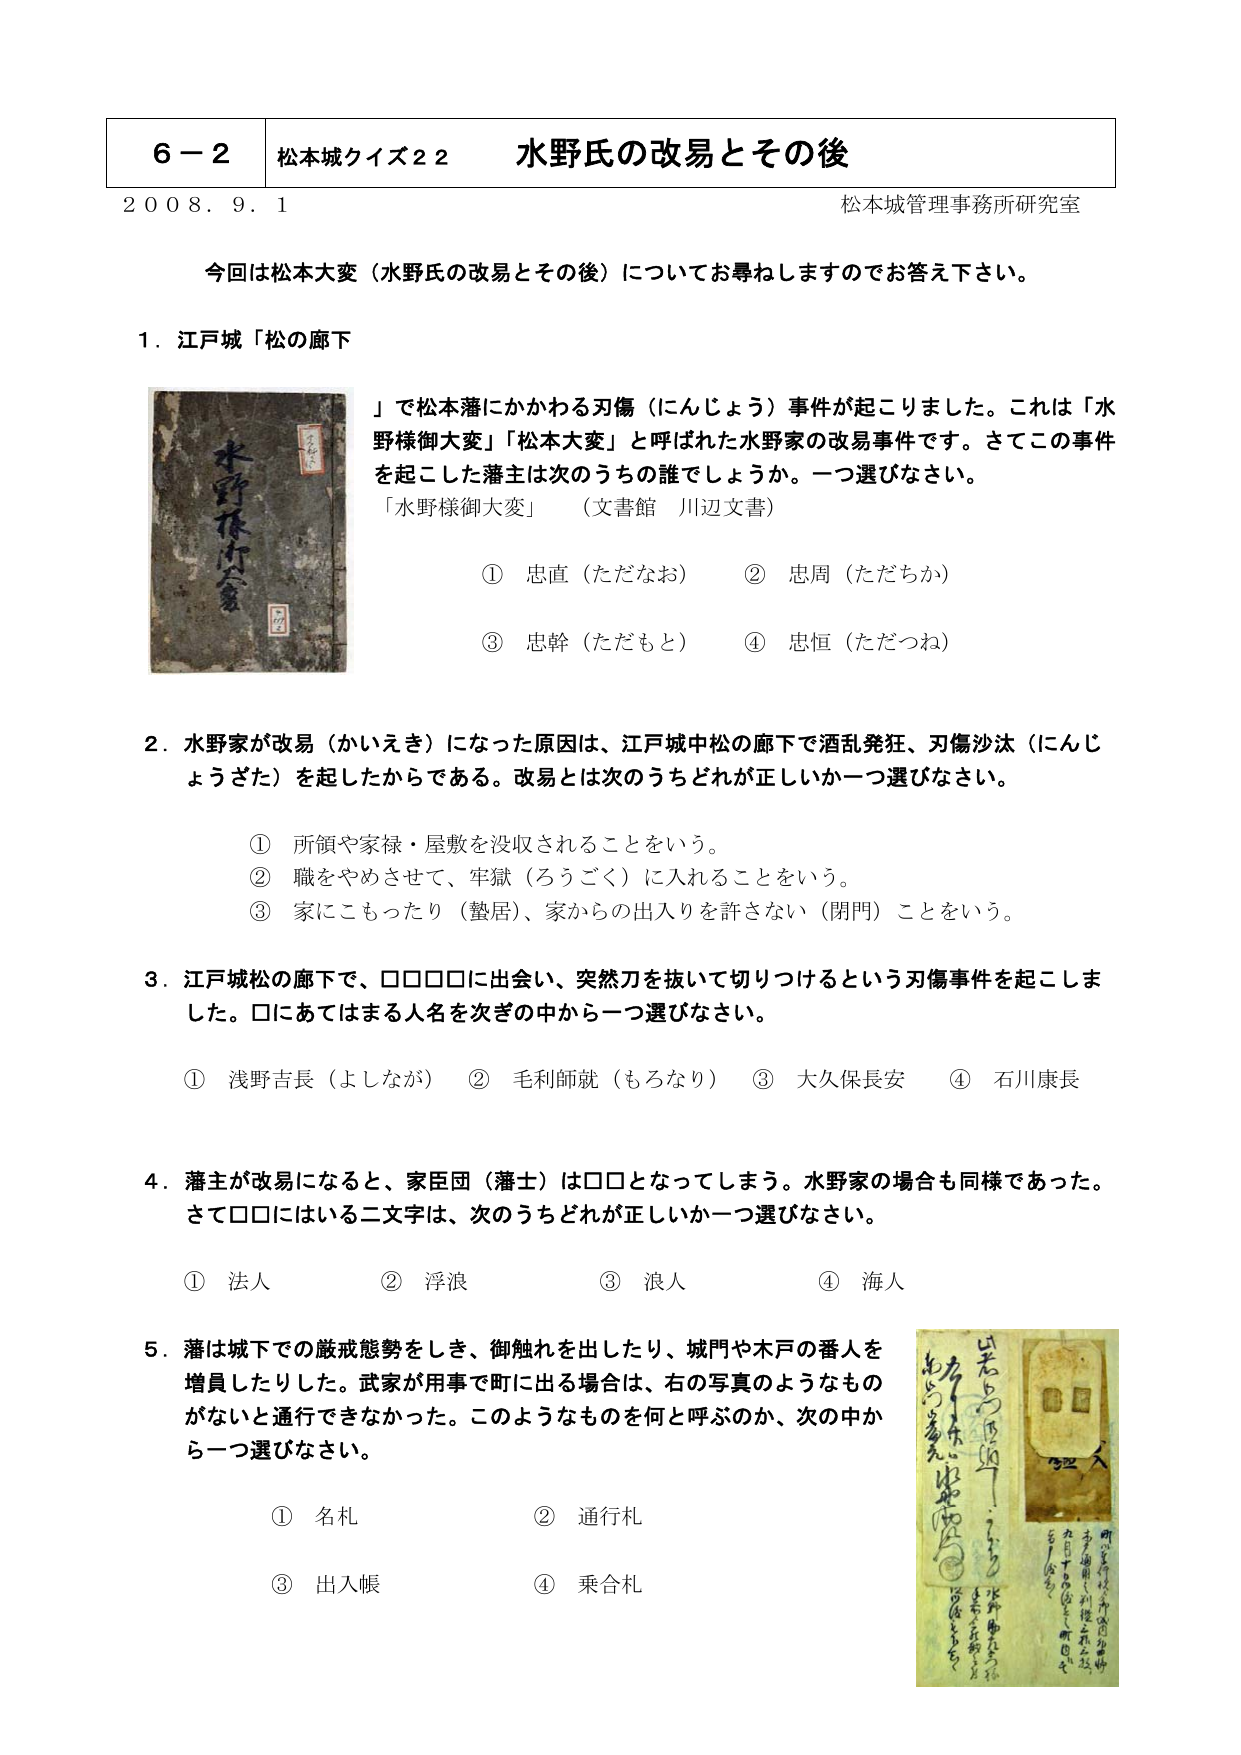 ６－２ 松本城クイズ２２ 水野氏の改易とその後
２００８．９．１ 松本城管理事務所研究室
今回は松本大変（水野氏の改易とその後）についてお尋ねしますのでお答え下さい。
１．江戸城「松の廊下
」で松本藩にかかわる刃傷（にんじょう）事件が起こりました。これは「水
野様御大変」「松本大変」と呼ばれた水野家の改易事件です。さてこの事件
を起こした藩主は次のうちの誰でしょうか。一つ選びなさい。
「水野様御大変」 （文書館 川辺文書）
水野様御大変
① 忠直（ただなお） ② 忠周（ただちか）
③ 忠幹（ただもと） ④ 忠恒（ただつね）
２．水野家が改易（かいえき）になった原因は、江戸城中松の廊下で酒乱発狂、刃傷沙汰（にんじ
ょうざた）を起したからである。改易とは次のうちどれが正しいか一つ選びなさい。
① 所領や家禄・屋敷を没収されることをいう。
② 職をやめさせて、牢獄（ろうごく）に入れることをいう。
③ 家にこもったり（蟄居）、家からの出入りを許さない（閉門）ことをいう。
３．江戸城松の廊下で、口口口口に出会い、突然刀を抜いて切りつけるという刃傷事件を起こしま
した。口にあてはまる人名を次ぎの中から一つ選びなさい。
① 浅野吉長（よしなが） ② 毛利師就（もろなり） ③ 大久保長安 ④ 石川康長
４．藩主が改易になると、家臣団（藩士）は口口となってしまう。水野家の場合も同様であった。
さて口口にはいる二文字は、次のうちどれが正しいか一つ選びなさい。
① 法人 ② 浮浪 ③ 浪人 ④ 海人
５．藩は城下での厳戒態勢をしき、御触れを出したり、城門や木戸の番人を
増員したりした。武家が用事で町に出る場合は、右の写真のようなもの
がないと通行できなかった。このようなものを何と呼ぶのか、次の中か
ら一つ選びなさい。
① 名札 ② 通行札
③ 出入帳 ④ 乗合札